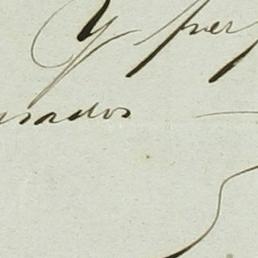 Y per
sados